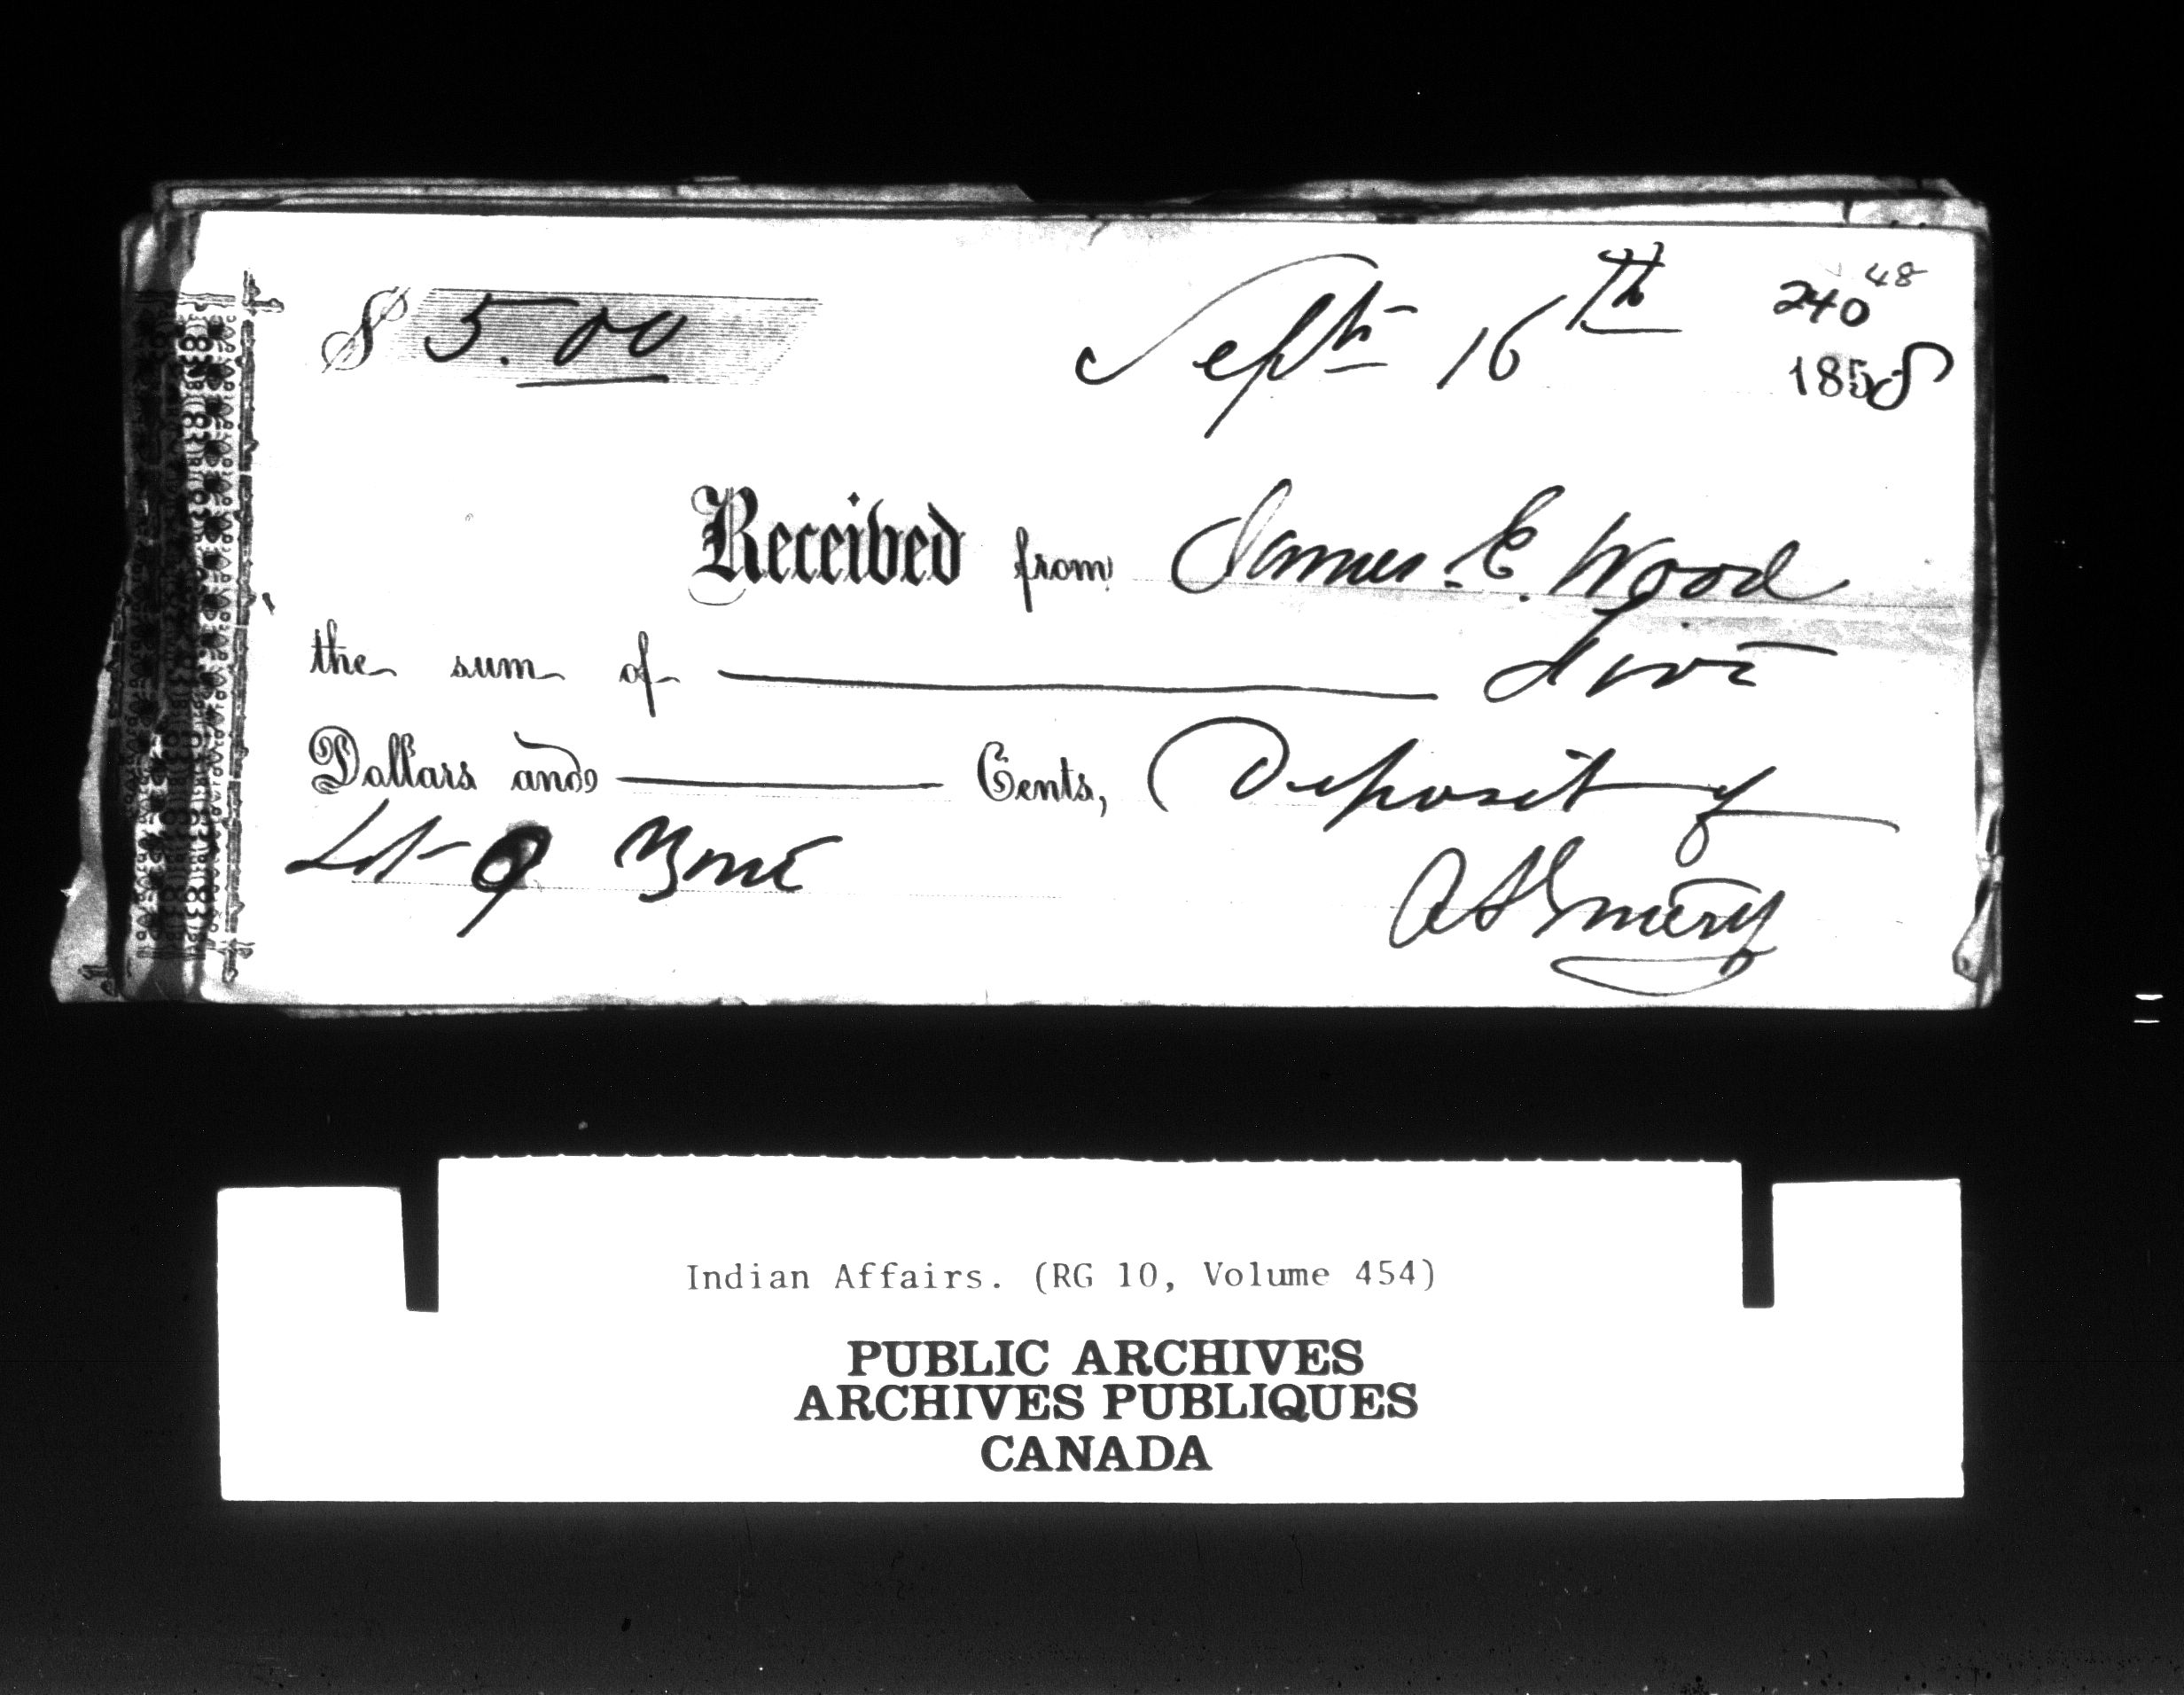 240 48
$ 5.00 Sept 16th 1858
Received from James E. Wood
the sum of five
Dollars and Cents, Deposit of
Lot 9
Indian Affairs. (RG 10, Volume 454)
PUBLIC ARCHIVES
ARCHIVES PUBLIQUES
CANADA